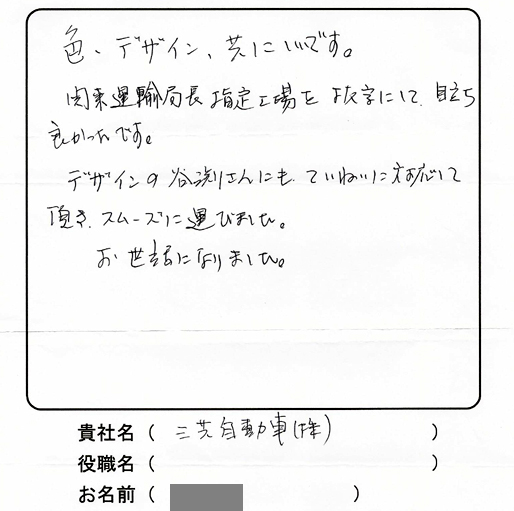 色、デザイン、共にいいです。
関東運輸局長指定工場を抜字にして、目立ち
良かったです。
デザインの谷渕さんにも、ていねいに対応して
頂き、スムーズに運びました。
お世話になりました。
貴社名（ 三共自動車(株) ）
役職名（ ）
お名前（ ）